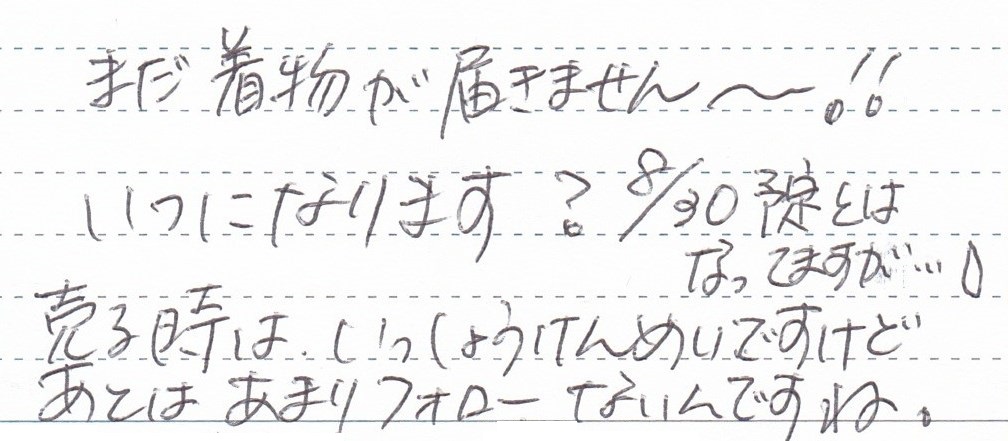 まだ着物が届きません〜!!
いつになります? 8/30 予定とは
なってますが…
売る時は、いっしょうけんめいですけど
あとは あまりフォローないんですね。